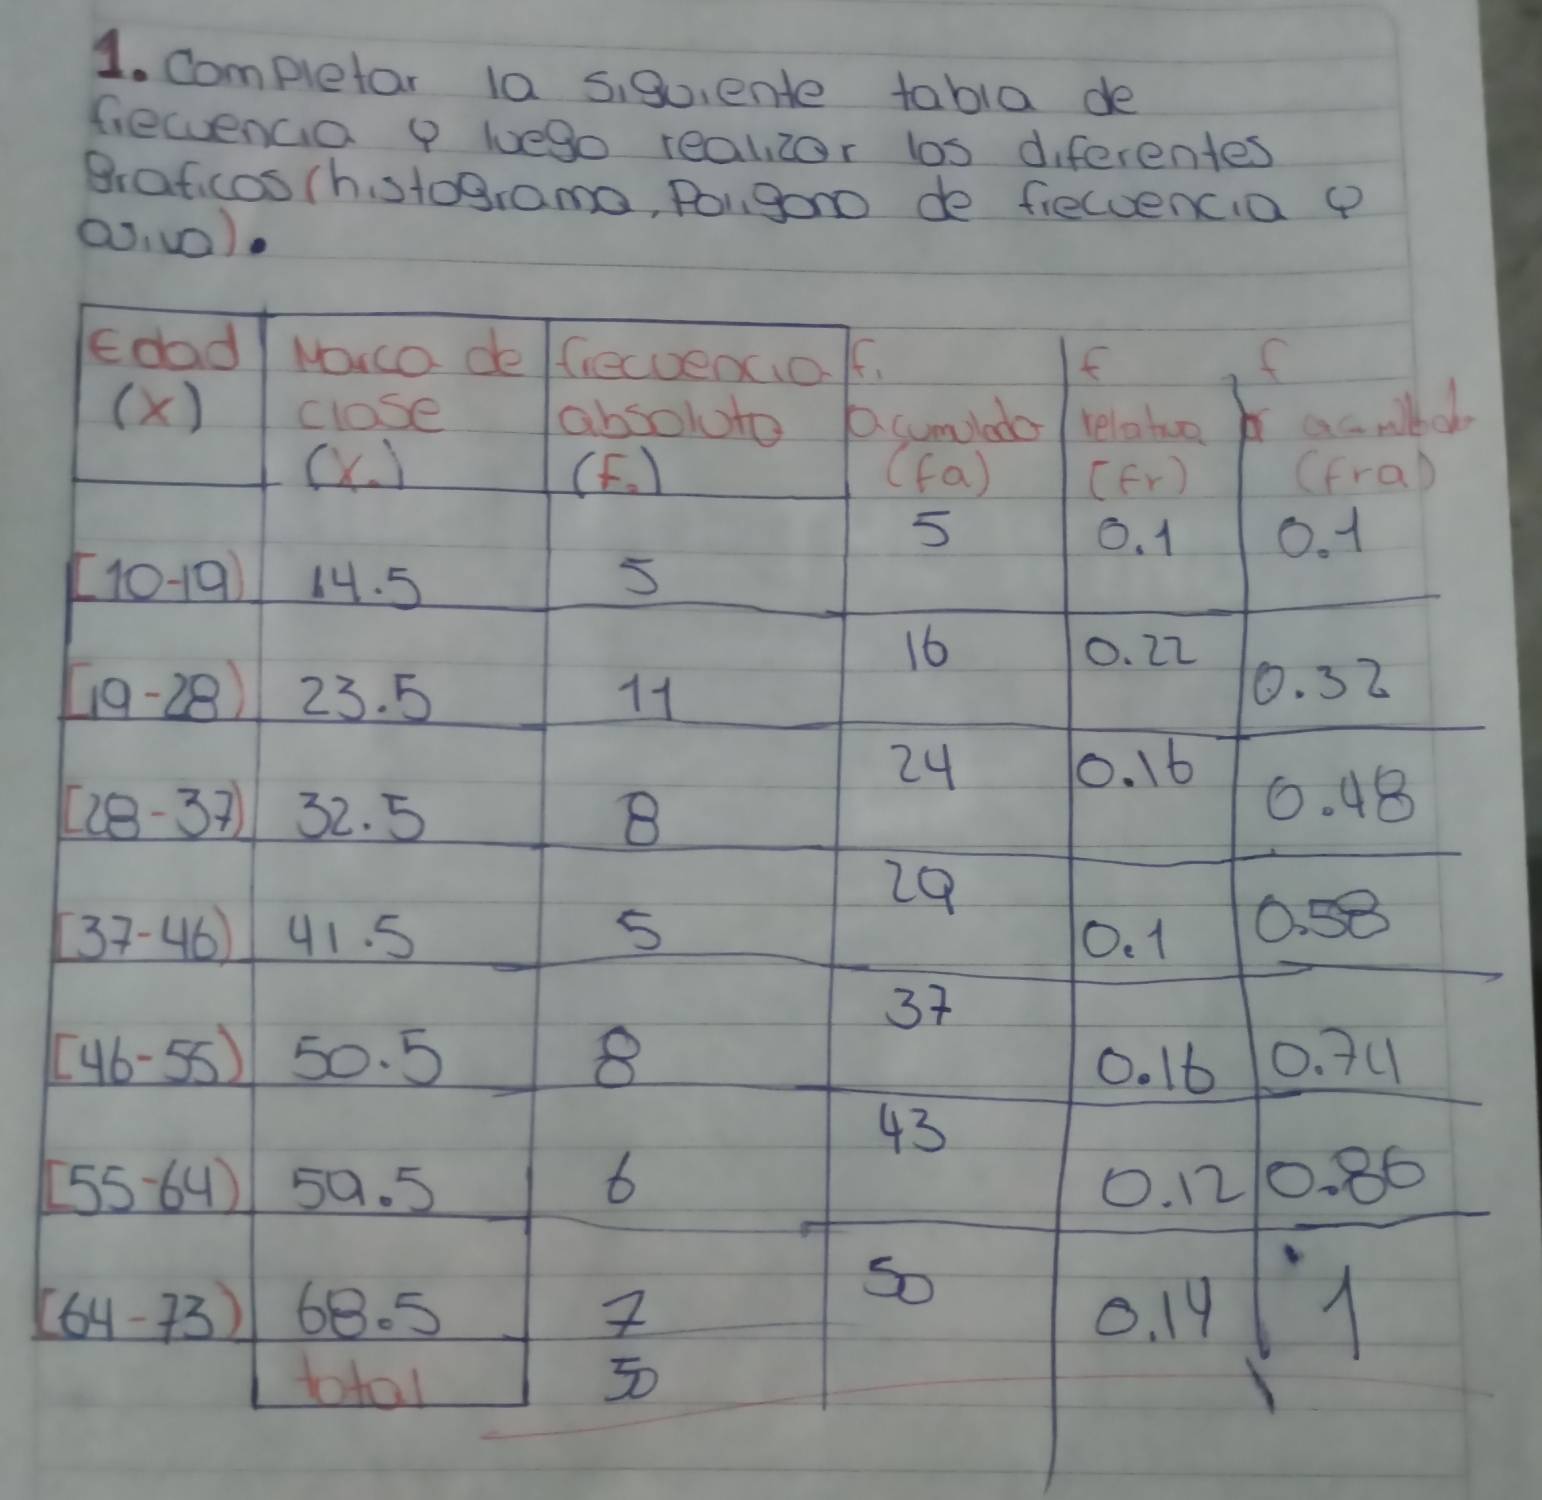 1. Completar la siguiente tabla de
frecuencia y luego realizar los diferentes
graficos (histograma, Poligono de frecuencia y
ogiva).
Edad Marca de frecuencia f. f f
(X) clase absoluta acumulada relativa r acumulada
(X.) (F.) (fa) (fr) (fra)
[10-19) 14.5 5 5 0.1 0.1
[19-28) 23.5 11 16 0.22 0.32
[28-37) 32.5 8 24 0.16 0.48
[37-46) 41.5 5 29 0.1 0.58
[46-55) 50.5 8 37 0.16 0.74
[55-64) 59.5 6 43 0.12 0.86
[64-73) 68.5 7 50 0.14 1
total 50